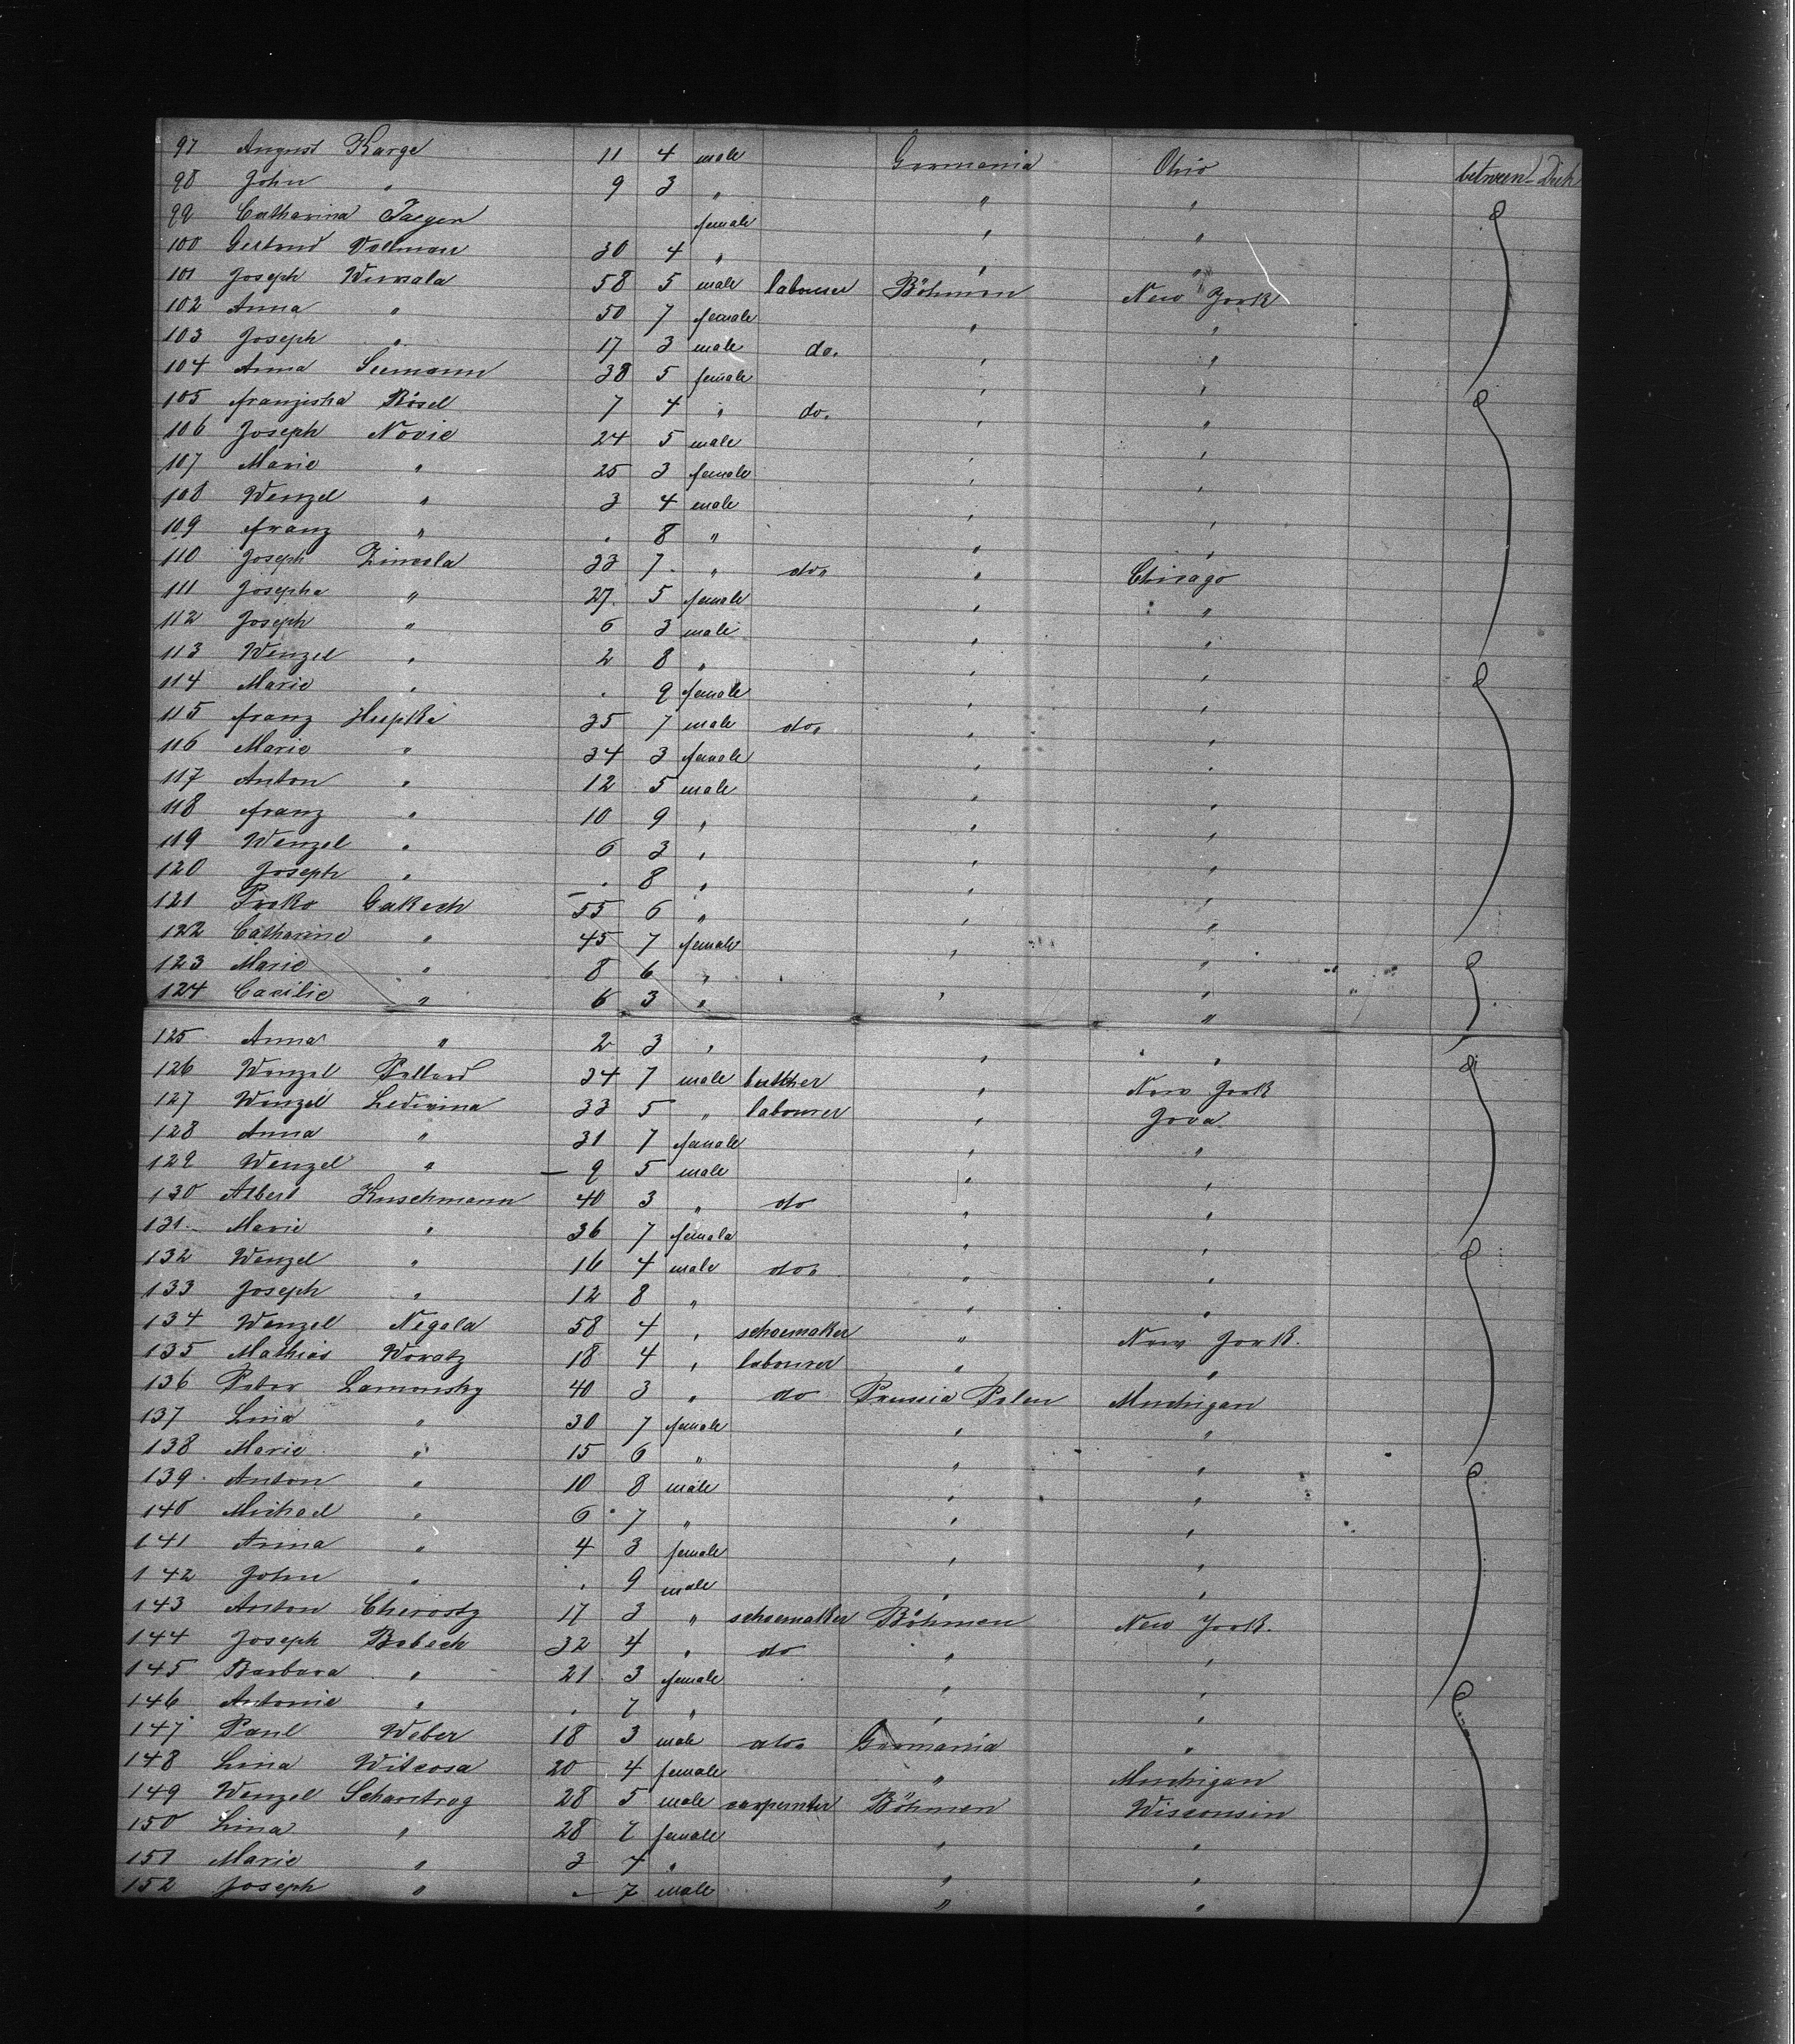 97 August Karge 11 4 male Germania Ohio between Deck
98 John " 9 3 " " "
99 Catharina Jaeger female " "
100 Gertrud Volkman 30 4 " " "
101 Joseph Wersala 58 5 male labourer Böhmen New York
102 Anna " 50 7 female " "
103 Joseph " 17 3 male do. " "
104 Anna Siemann 38 5 female " "
105 franziska Rösel 7 4 " do. " "
106 Joseph Novie 24 5 male " "
107 Marie " 25 3 female " "
108 Wenzel " 3 4 male " "
109 franz " . 8 " " "
110 Joseph Zimola 33 7 " do. " Chicago
111 Josepha " 27 5 female " "
112 Joseph " 6 3 male " "
113 Wenzel " 2 8 " " "
114 Marie " . 9 female " "
115 franz Hupka 35 7 male do. " "
116 Marie " 34 3 female " "
117 Anton " 12 5 male " "
118 franz " 10 9 " " "
119 Wenzel " 6 3 " " "
120 Joseph " . 8 " " "
121 Proko Gakesch 55 6 " " "
122 Catharine " 45 7 female " "
123 Marie " 8 6 " " "
124 Cacilie " 6 3 " " "
125 Anna " 2 3 " " "
126 Wenzel Pollard 34 7 male butcher " New York
127 Wenzel Ledivina 33 5 " labourer " Jova
128 Anna " 31 7 female " "
129 Wenzel " 9 5 male " "
130 Albert Kuschmann 40 3 " do " "
131 Marie " 36 7 female " "
132 Wenzel " 16 4 male do. " "
133 Joseph " 12 8 " " "
134 Wenzel Negala 58 4 " schoemaker " New York
135 Mathias Woratz 18 4 " labourer " "
136 Peter Lamonsky 40 3 " do Prussia Polen Muchigan
137 Lina " 30 7 female " "
138 Marie " 15 6 " " "
139 Anton " 10 8 male " "
140 Michael " 6 7 " " "
141 Anna " 4 3 female " "
142 John " . 9 male " "
143 Anton Cherostz 17 3 " schoemaker Böhmen New York
144 Joseph Bobech 32 4 " do " "
145 Barbara " 21 3 female " "
146 Antonie " . 7 " " "
147 Paul Weber 18 3 male do. Germania "
148 Lina Witcosa 20 4 female " Muchigan
149 Wenzel Scharitrog 28 5 male carpenter Böhmen Wisconsin
150 Lina " 28 7 female " "
151 Marie " 3 4 " " "
152 Joseph " . 7 male " "